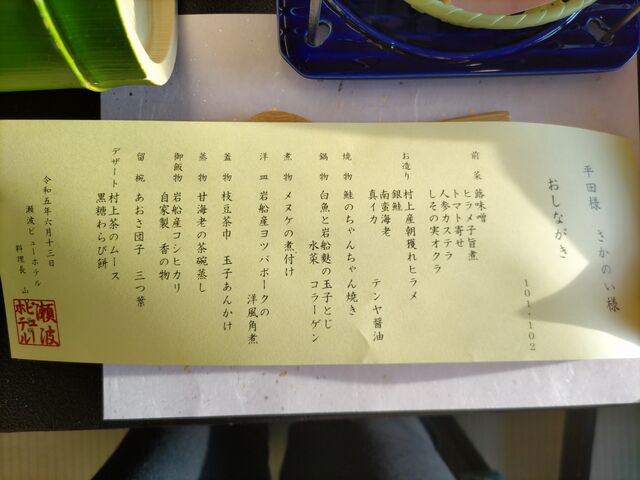 平田様 さかのい様
おしながき
101・102
前菜 蕗味噌
ヒラメ子旨煮
トマト寄せ
人参カステラ
しその実オクラ
お造り 村上産朝獲れヒラメ
銀鮭
南蛮海老
真イカ テンヤ醤油
焼物 鮭のちゃんちゃん焼き
鍋物 白魚と岩船麩の玉子とじ
水菜 コラーゲン
煮物 メヌケの煮付け
洋皿 岩船産ヨツバポークの
洋風角煮
蓋物 枝豆茶巾 玉子あんかけ
蒸物 甘海老の茶碗蒸し
御飯物 岩船産コシヒカリ
自家製 香の物
留椀 あおさ団子 三つ葉
デザート 村上茶のムース
黒糖わらび餅
令和五年六月十三日
瀬波ビューホテル
料理長 山
瀬波
ビュー
ホテル